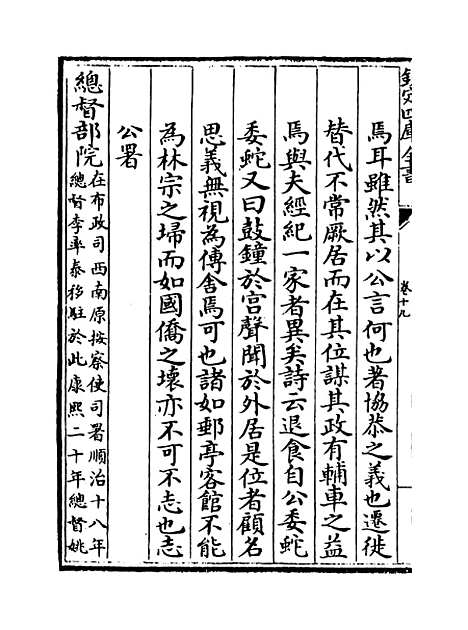 欽定四庫全書
卷十九
焉耳雖然其以公言何也著協恭之義也遷徙
替代不常厥居而在其位謀其政有輔車之益
焉與夫經紀一家者異矣詩云退食自公委蛇
委蛇又曰鼓鐘於宫聲聞於外居是位者顧名
思義無視為傳舍焉可也諸如郵亭客館不能
為林宗之埽而如國僑之壞亦不可不志也志
公署
總督部院在布政司西南原按察使司署順治十八年
總督李率泰移駐於此康熙二十年總督姚